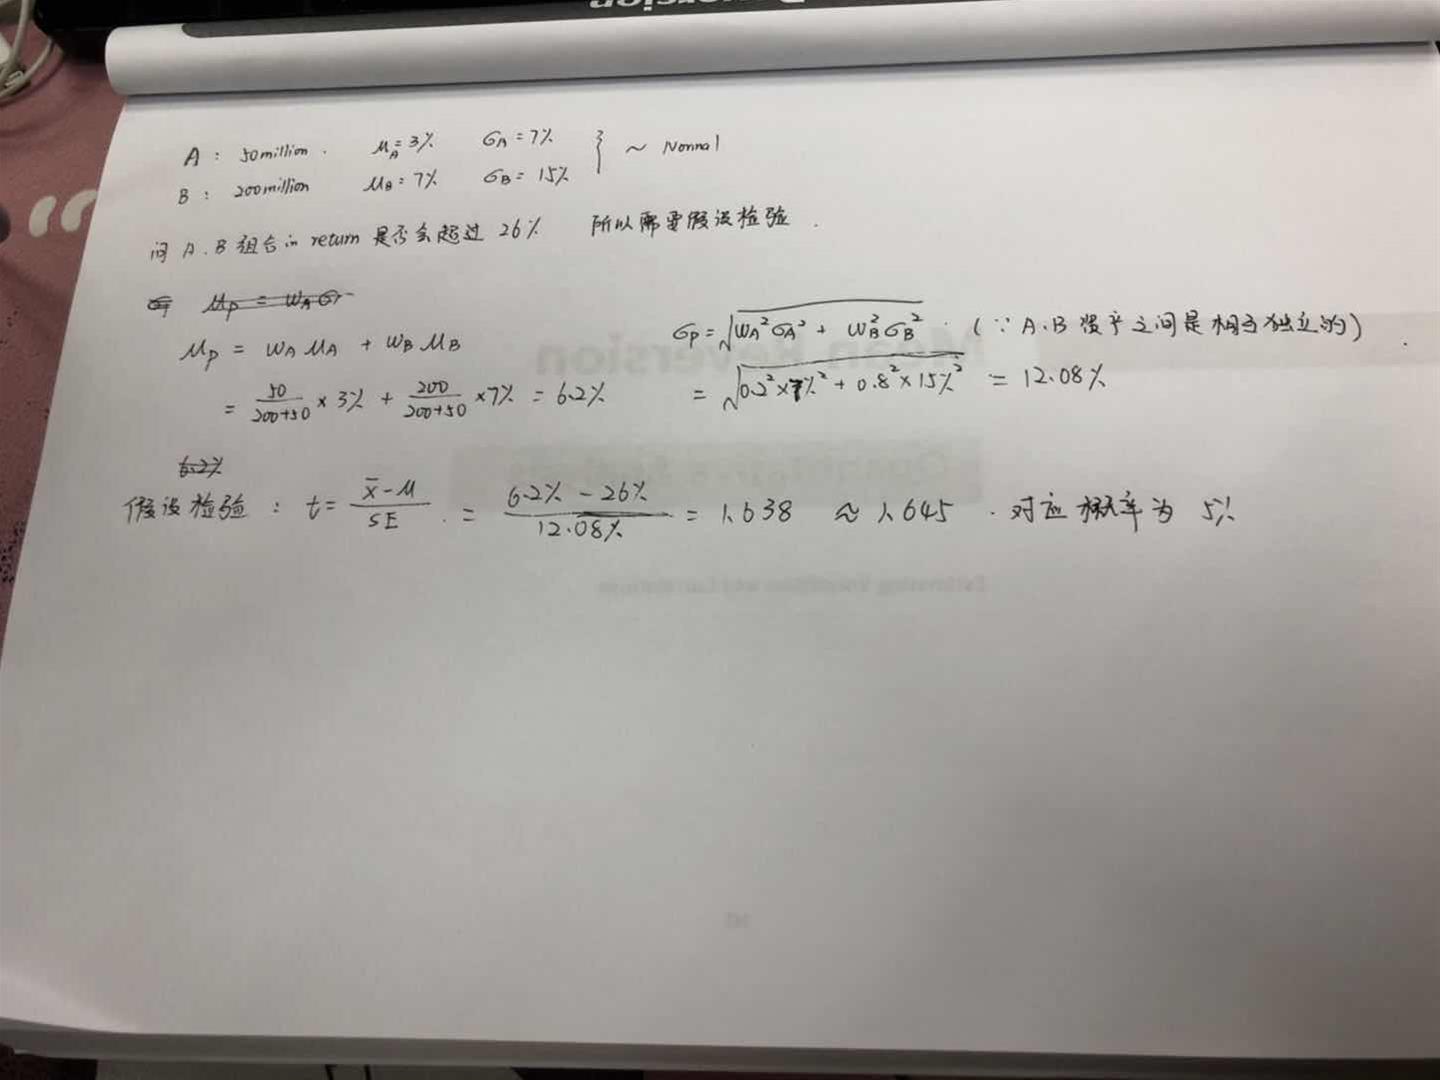 version
A : 50million . μA = 3% σA = 7%
B : 200million μB = 7% σB = 15% } ~ Normal
问 A.B组合in return 是否会超过 26% 所以需要假设检验 .
μp = WAσ
μp = WA μA + WB μB
= 50/(200+50) × 3% + 200/(200+50) ×7% = 6.2%
σp = √(WA²σA² + WB²σB²) . ( ∵ A.B 资产之间是相互独立的) .
= √(0.2²×7%² + 0.8²×15%²) = 12.08%
6.2%
假设检验 : t = (x̄-μ)/SE . = (6.2% - 26%)/12.08% = 1.638 ≈ 1.645 . 对应概率为 5%
Mean Reversion